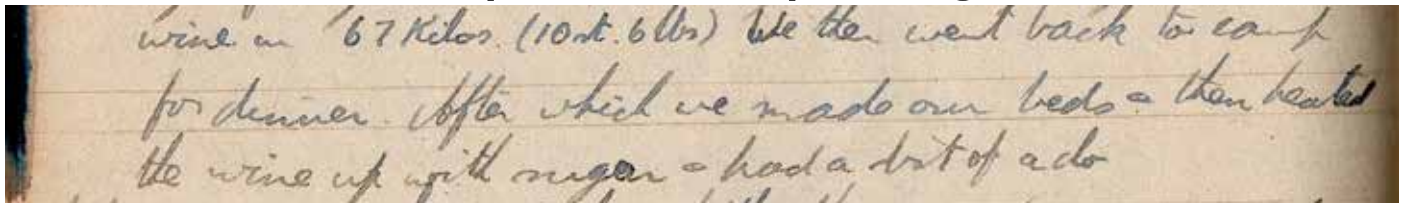 wine on 67 Kilos. (10st. 6lbs) We then went back to camp
for dinner. After which we made our beds & then heated
the wine up with sugar & had a bit of a do